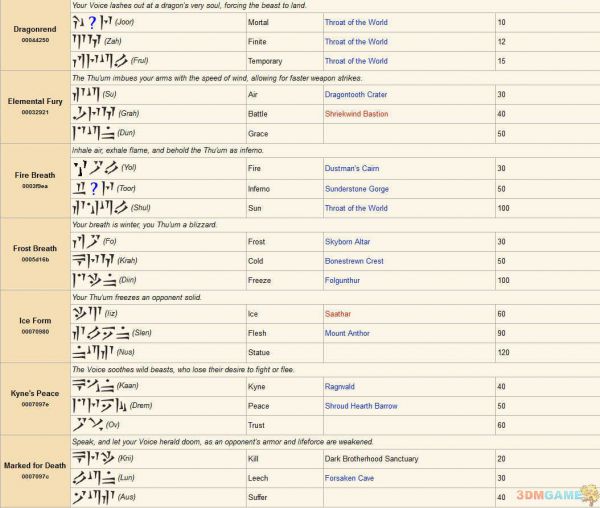 Your Voice lashes out at a dragon's very soul, forcing the beast to land.
Dragonrend
00044250
? (Joor) Mortal Throat of the World 10
(Zah) Finite Throat of the World 12
(Frul) Temporary Throat of the World 15
The Thu'um imbues your arms with the speed of wind, allowing for faster weapon strikes.
Elemental Fury
00032921
(Su) Air Dragontooth Crater 30
(Grah) Battle Shriekwind Bastion 40
(Dun) Grace 50
Inhale air, exhale flame, and behold the Thu'um as inferno.
Fire Breath
0003f9ea
(Yol) Fire Dustman's Cairn 30
? (Toor) Inferno Sunderstone Gorge 50
(Shul) Sun Throat of the World 100
Your breath is winter, you Thu'um a blizzard.
Frost Breath
0005d16b
(Fo) Frost Skyborn Altar 30
(Krah) Cold Bonestrewn Crest 50
(Diin) Freeze Folgunthur 100
Your Thu'um freezes an opponent solid.
Ice Form
00070980
(Iiz) Ice Saathar 60
(Slen) Flesh Mount Anthor 90
(Nus) Statue 120
The Voice soothes wild beasts, who lose their desire to fight or flee.
Kyne's Peace
0007097e
(Kaan) Kyne Ragnvald 40
(Drem) Peace Shroud Hearth Barrow 50
(Ov) Trust 60
Speak, and let your Voice herald doom, as an opponent's armor and lifeforce are weakened.
Marked for Death
0007097c
(Krii) Kill Dark Brotherhood Sanctuary 20
(Lun) Leech Forsaken Cave 30
(Aus) Suffer 40
3DMGAME